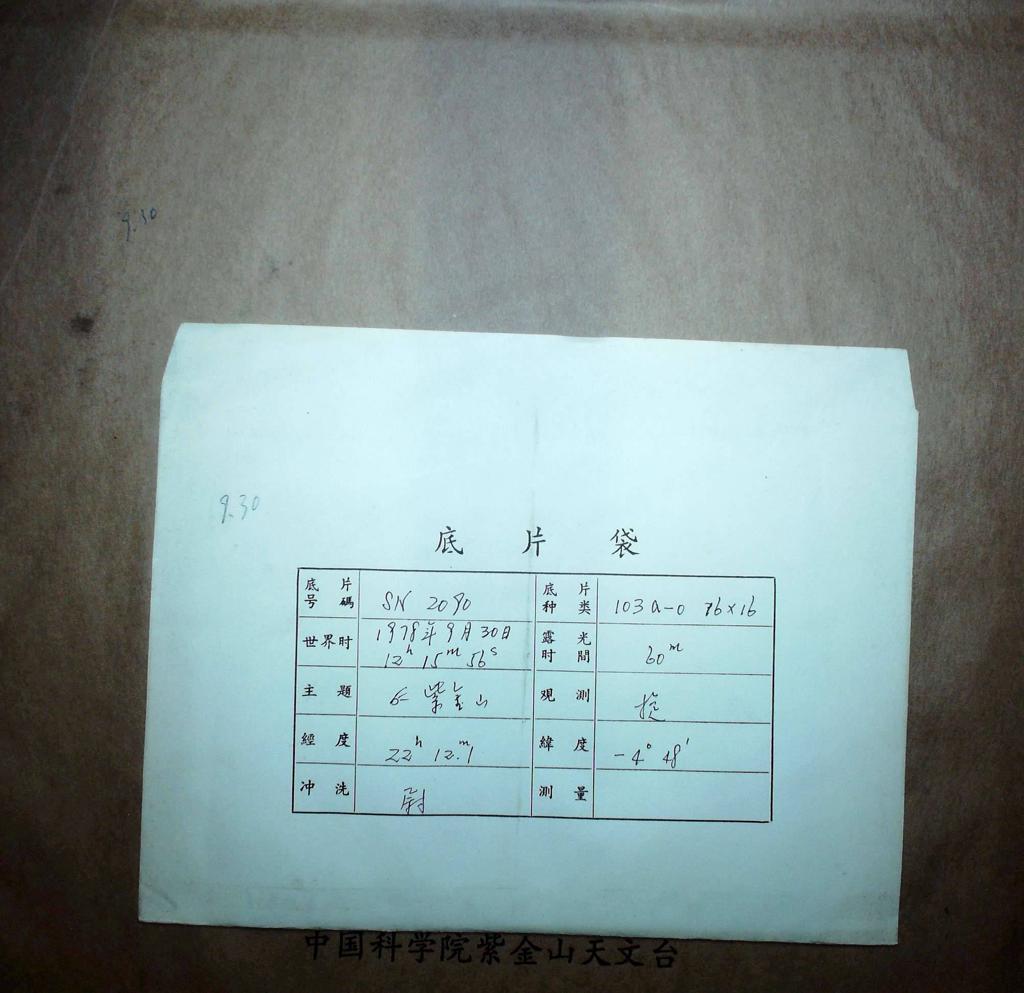 9.30
9.30
底 片 袋
底 片 号 碼 SN 2090 底 片 种 类 103a-0 16×16
世界时 1978年9月30日 12ʰ 15ᵐ 56ˢ 露 光 时 間 60ᵐ
主 題 紫金山 观 測
經 度 22ʰ 12ᵐ.1 緯 度 -4° 48′
冲 洗 尉 测 量
中国科学院紫金山天文台